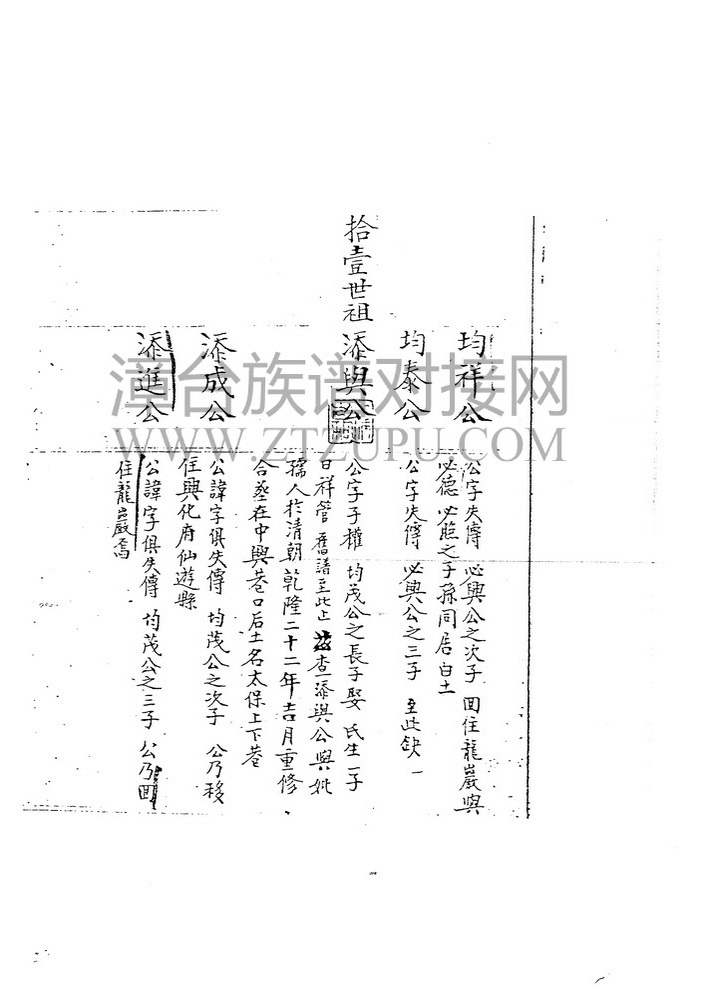 均祥公
公字失傳 必興公之次子 回住龍巖與
必德 必熊之子孫同居白土
均泰公
公字失傳 必興公之三子 至此缺
拾壹世祖
添與公
公字子權 均茂公之長子娶 氏生一子
曰祥管 舊譜至此止 茲查添與公與妣
孺人於清朝乾隆二十二年吉月重修
合塟在中興巷口后土名太保上下巷
添成公
公諱字俱失傳 均茂公之次子 公乃移
住興化府仙遊縣
添進公
公諱字俱失傳 均茂公之三子 公乃回
住龍巖焉
漳台族谱对接网
WWW.ZTZUPU.COM